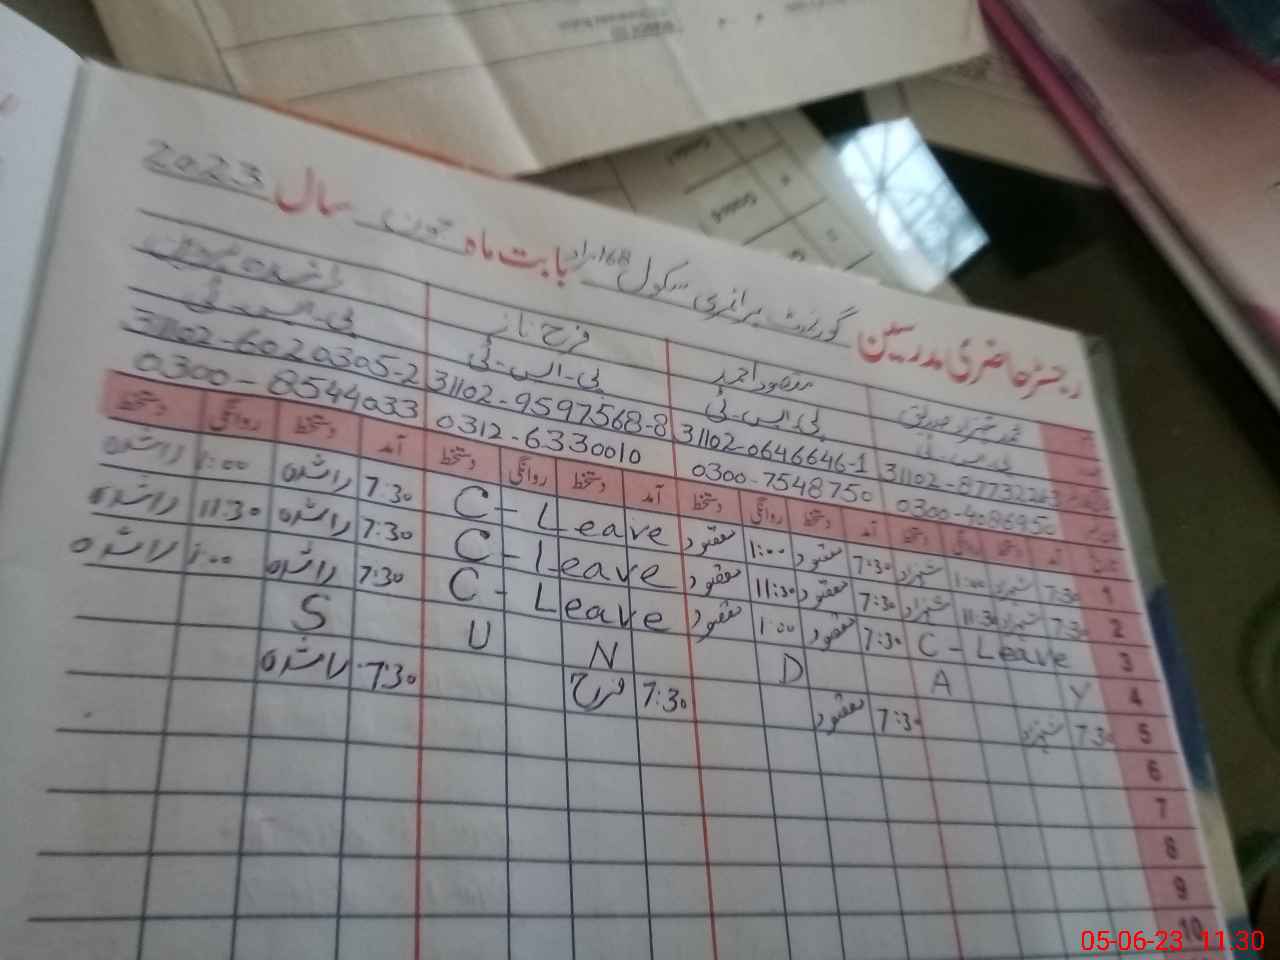 رجسٹر حاضری مدرسین گورنمنٹ پرائمری سکول 168 مراد بابت ماہ جون سال 2023
محمد شہزاد صدیق مقصود احمد فرح ناز راشدہ پروین
پی۔ایس۔ٹی پی۔ایس۔ٹی پی۔ایس۔ٹی پی۔ایس۔ٹی
31102-0646646-1 31102-9597568-8 31102-6020305-2
0300-4086950 0300-7548750 0312-6330010 0300-8544033
تاریخ آمد دستخط روانگی دستخط آمد دستخط روانگی دستخط آمد دستخط روانگی دستخط آمد دستخط روانگی دستخط
1 7:30 شہزاد 1:00 شہزاد 7:30 مقصود 1:00 مقصود C-Leave 7:30 راشدہ 1:00 راشدہ
2 7:30 شہزاد 11:30 شہزاد 7:30 مقصود 11:30 مقصود C-Leave 7:30 راشدہ 11:30 راشدہ
3 C-Leave 7:30 مقصود 1:00 مقصود C-Leave 7:30 راشدہ 1:00 راشدہ
4 S U N D A Y
5 7:30 شہزاد 7:30 مقصود 7:30 فرح 7:30 راشدہ
6
7
8
9
10
05-06-23 11:30